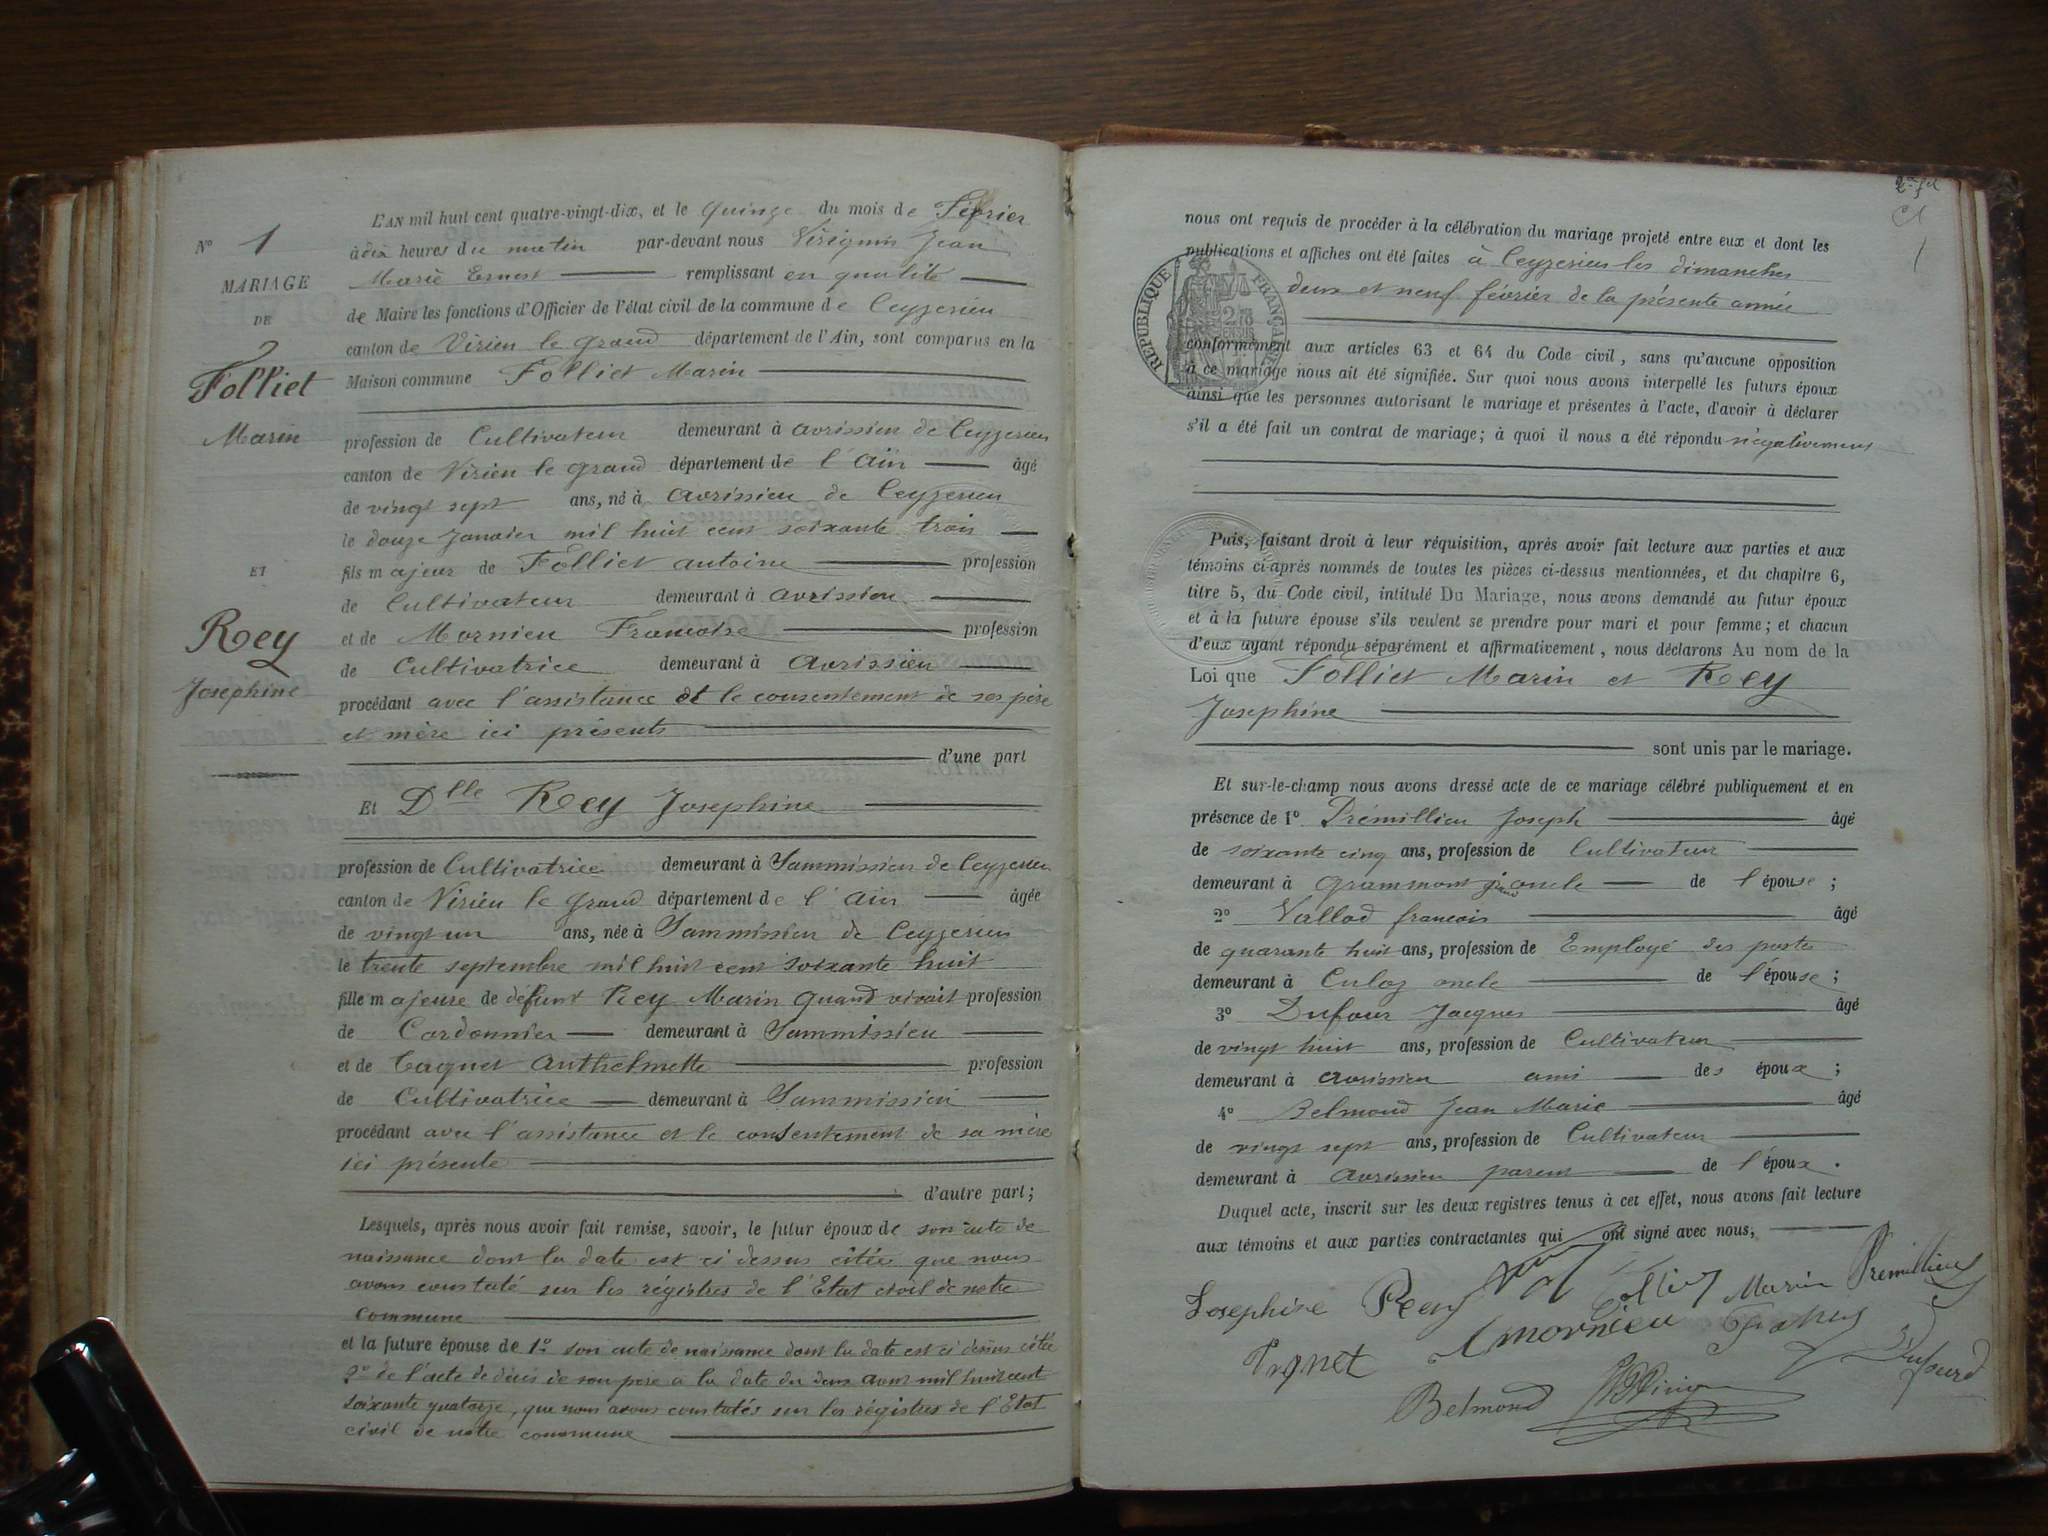 L'AN mil huit cent quatre-vingt-dix, et le quinze du mois de Février
N° 1
à dix heures du matin par-devant nous Jean
Marie Ernest remplissant en qualité
MARIAGE
de Maire les fonctions d'Officier de l'état civil de la commune de Ceyzerieu
DE
canton de Virieu le grand département de l'Ain, sont comparus en la
Folliet
Maison commune Folliet Marin
Marin
profession de Cultivateur demeurant à avrissieu de Ceyzerieu
canton de Virieu le grand département de l'Ain âgé
de vingt sept ans, né à avrissieu de Ceyzerieu
le douze Janvier mil huit cent soixante trois
ET
fils majeur de Folliet antoine profession
de Cultivateur demeurant à avrissieu
Rey
et de Mornieu Francoise profession
de Cultivatrice demeurant à avrissieu
Josephine
procédant avec l'assistance et le consentement de ses père
et mère ici présents
d'une part
Et Dlle Rey Josephine
profession de Cultivatrice demeurant à Sammissieu de Ceyzerieu
canton de Virieu le grand département de l'Ain âgée
de vingt un ans, née à Sammissieu de Ceyzerieu
le trente septembre mil huit cent soixante huit
fille majeure de défunt Rey Marin quand vivait profession
de Cordonnier demeurant à Sammissieu
et de Taquet Anthelmette profession
de Cultivatrice demeurant à Sammissieu
procédant avec l'assistance et le consentement de sa mère
ici présente
d'autre part;
Lesquels, après nous avoir fait remise, savoir, le futur époux de son acte de
naissance dont la date est ci dessus citée que nous
avons constaté sur les régistres de l'Etat civil de notre
commune
et la future épouse de 1° son acte de naissance dont la date est ci dessus citée
2° de l'acte de décès de son père a la date du deux avril mil huit cent
soixante quatorze, que nous avons constatés sur les régistres de l'Etat
civil de notre commune
nous ont requis de procéder à la célébration du mariage projeté entre eux et dont les
publications et affiches ont été faites à Ceyzerieu les dimanches
deux et neuf février de la présente année
RÉPUBLIQUE FRANÇAISE
conformément aux articles 63 et 64 du Code civil, sans qu'aucune opposition
à ce mariage nous ait été signifiée. Sur quoi nous avons interpellé les futurs époux
ainsi que les personnes autorisant le mariage et présentes à l'acte, d'avoir à déclarer
s'il a été fait un contrat de mariage; à quoi il nous a été répondu négativement
Puis, faisant droit à leur réquisition, après avoir fait lecture aux parties et aux
témoins ci-après nommés de toutes les pièces ci-dessus mentionnées, et du chapitre 6,
titre 5, du Code civil, intitulé Du Mariage, nous avons demandé au futur époux
et à la future épouse s'ils veulent se prendre pour mari et pour femme; et chacun
d'eux ayant répondu séparément et affirmativement, nous déclarons Au nom de la
Loi que Folliet Marin et Rey
Josephine
sont unis par le mariage.
Et sur-le-champ nous avons dressé acte de ce mariage célébré publiquement et en
présence de 1° Prémillieu Joseph âgé
de soixante cinq ans, profession de Cultivateur
demeurant à grammont grand oncle de l'épouse;
2° Vallod francois âgé
de quarante huit ans, profession de Employé des postes
demeurant à Culoz oncle de l'épouse;
3° Dufour Jacques âgé
de vingt huit ans, profession de Cultivateur
demeurant à avrissieu ami des époux;
4° Belmond Jean Marie âgé
de vingt sept ans, profession de Cultivateur
demeurant à avrissieu parent de l'époux.
Duquel acte, inscrit sur les deux registres tenus à cet effet, nous avons fait lecture
aux témoins et aux parties contractantes qui ont signé avec nous,
Josephine Rey Folliet Marin Premillieu
mornieu
Dufourd
Belmond